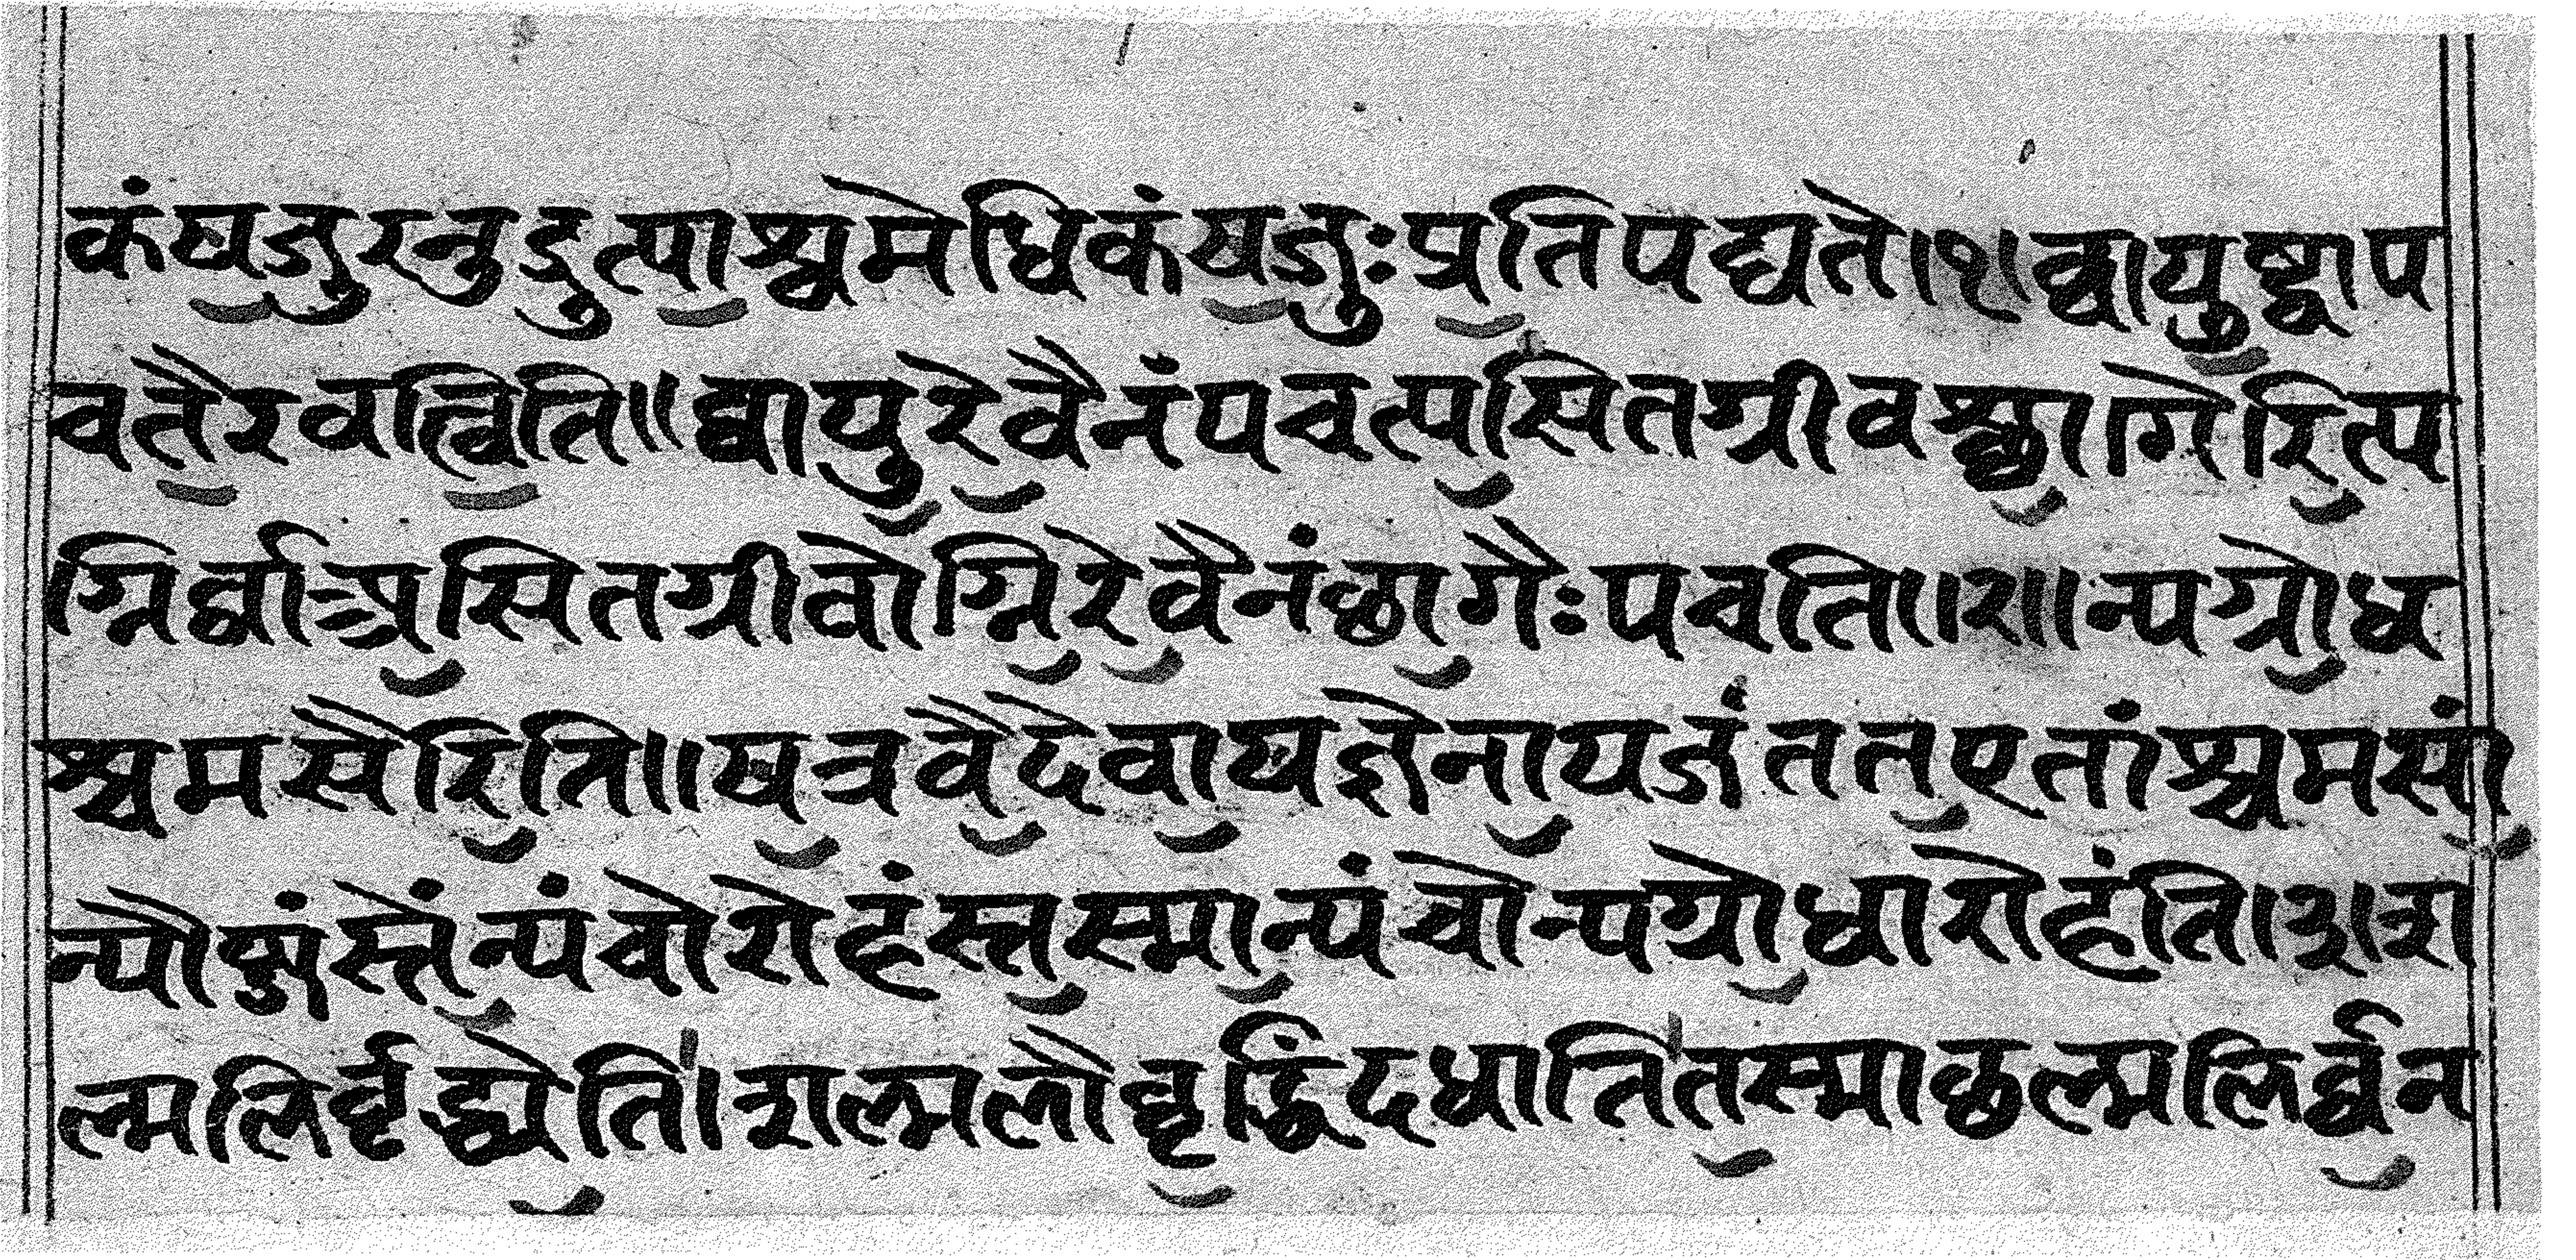 कं यजुरनुद्रुत्याश्वमेधिकं यजुः प्रतिपद्यते।१। व्वायुष्ट्वाप
चतैरवत्विति॥ व्वायुरेवैनं पचत्यसितग्रीवश्छागैरित्य
ग्निर्व्वाऽअसितग्रीवोग्निरेवैनं छागैः पचति॥२॥ न्यग्रोध
श्चमसैरिति॥ यत्र वै देवा यज्ञेनायजंत तत एतांश्चमसां
न्यौब्जंस्तेन्यंचोरोहंस्तस्मान्यंचो न्यग्रोधा रोहंति।३। श
ल्मलिर्वृद्ध्येति। शल्मलौ व्वृद्धिं दधाति तस्माछल्मलिर्व्वन